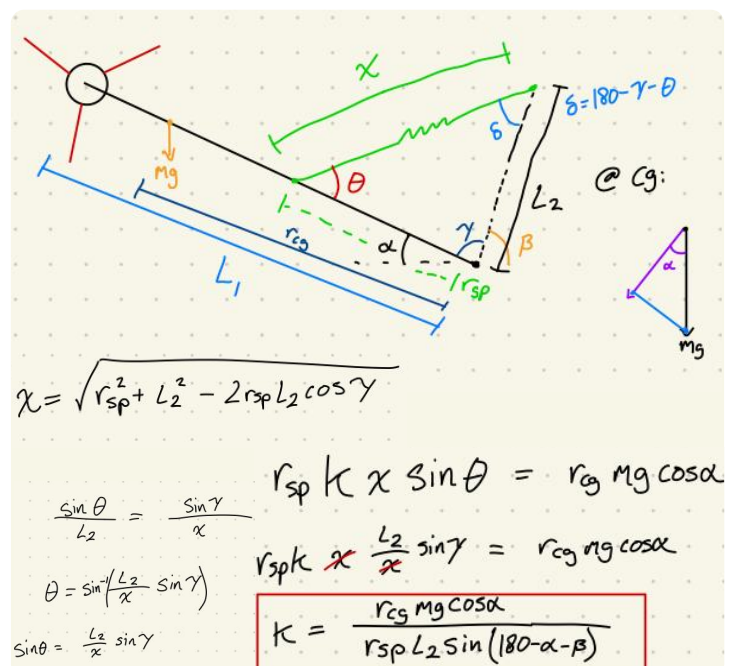 x
δ
δ=180-γ-θ
Mg
θ
L₂
@ cg:
r_cg
α
γ
β
r_sp
L₁
α
mg
x = √(r_sp² + L₂² - 2r_sp L₂ cosγ)
r_sp k x sinθ = r_cg mg cosα
sinθ/L₂ = sinγ/x
r_sp k x L₂/x sinγ = r_cg mg cosα
θ = sin⁻¹(L₂/x sinγ)
k = r_cg mg cosα / r_sp L₂ sin(180-α-β)
sinθ = L₂/x sinγ